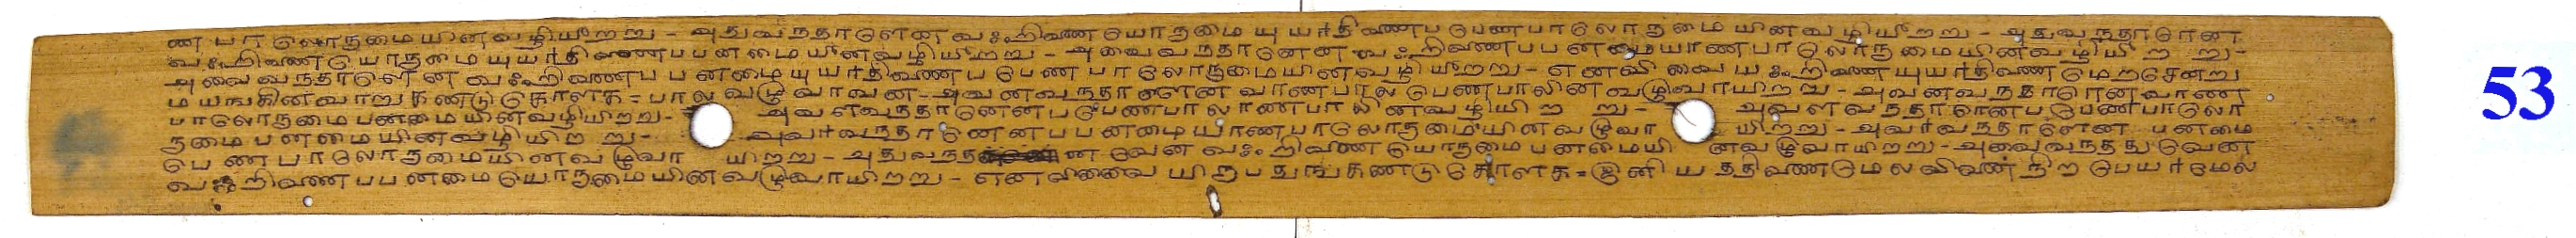 ண பாலொருமையின வழியிற்று - அதுவந்தாளென வஃறிணை யொருமை யுயர்திணைப பெண்பாலொருமையின வழியிற்று - அதுவந்தாரென
வஃறிணை யொருமை யுயர்திணைப பன்மையின வழியிற்று - அவைவந்தானென வஃறிணைப பன்மை யாண்பாலொருமையின வழியிற்று -
அவைவந்தாளென வஃறிணைப பன்மை யுயர்திணைப பெண்பாலொருமையின வழியிற்று - எனவிவை யஃறிணை யுயர்திணை மேற்சென்று
மயங்கினவாறு கண்டுகொளக = பால் வழுவாவன - அவன்வந்தாளென வாண்பால பெண்பாலின வழுவாயிற்று - அவன்வந்தாரென வாண
பாலொருமை பன்மையின வழியிற்று - அவள்வந்தானென பெண்பா லாண்பாலின வழியிற்று - அவள்வந்தாரென பெண்பாலொ
ருமை பன்மையின வழியிற்று - அவர்வந்தானென பபன்மை யாண்பாலொருமையின வழுவாயிற்று - அவர்வந்தாளென பன்மை
பெண்பாலொருமையின வழுவாயிற்று - அதுவந்தன வென வஃறிணை யொருமை பன்மையினவழுவாயிற்று - அவைவந்தது வென
வஃறிணைப பன்மை யொருமையின வழுவாயிற்று - எனவிவை யிருபதுங் கண்டுகொளக = இனி யத்திணை மேலவிண நிற பெயர்மேல
53